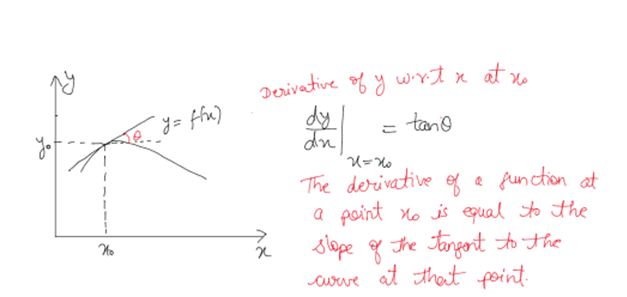 y
Derivative of y w.r.t x at x₀
y = f(x)
θ
dy/dx |x=x₀ = tanθ
y₀
The derivative of a function at
a point x₀ is equal to the
slope of the tangent to the
curve at that point.
x₀
x